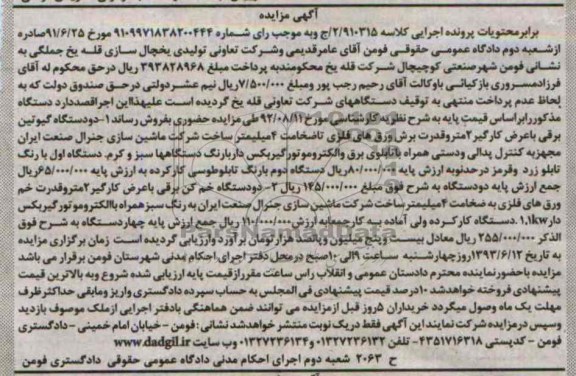 آگهی مزایده
برابرمحتویات پرونده اجرایی کلاسه ۲/۹۱۰۳۱۵/ج وبه موجب رای شماره ۹۱۰۹۹۷۱۸۳۸۲۰۰۴۴۴ مورخ ۹۱/۶/۲۵صادره
ازشعبه دوم دادگاه عمومی حقوقی فومن آقای عامرقدیمی وشرکت تعاونی تولیدی یخچال سازی قله یخ جملگی به
نشانی فومن شهرصنعتی کوچیچال شرکت قله یخ محکومندبه پرداخت مبلغ ۳۹۳۸۲۸۹۶۸ ریال درحق محکوم له آقای
فرزادمسروری بازکیائی باوکالت آقای رحیم رجب پور ومبلغ ۷/۵۰۰/۰۰۰ریال نیم عشردولتی درحق صندوق دولت که به
لحاظ عدم پرداخت منتهی به توقیف دستگاههای شرکت تعاونی قله یخ گردیده است علیهذااین اجراقصددارد دستگاه
مذکوررابراساس قیمت پایه به شرح نظریه کارشناسی مورخ ۹۲/۰۸/۱۱ طی مزایده حضوری بفروش رساند ۱-دودستگاه گیوتین
برقی باعرض کارگیر۲متروقدرت برش ورق های فلزی تاضخامت ۴میلیمتر ساخت شرکت ماشین سازی جنرال صنعت ایران
مجهزبه کنترل پدالی ودستی همراه باتابلوی برق والکتروموتورگیربکس دارباررنگ دستگاهها سبز و کرم. دستگاه اول با رنگ
تابلو زرد وقرمز درحدنوبه ارزش پایه ۸۰/۰۰۰/۰۰۰ریال دستگاه دوم بارنگ تابلوطوسی کارکرده به ارزش پایه ۶۵/۰۰۰/۰۰۰ریال
جمع ارزش پایه دودستگاه به شرح فوق مبلغ ۱۴۵/۰۰۰/۰۰۰ ریال ۲- دودستگاه خم کن برقی باعرض کارگیر۲متروقدرت خم
ورق های فلزی به ضخامت ۴میلیمترساخت شرکت ماشین سازی جنرال صنعت ایران به رنگ سبزهمراه باالکتروموتورگیربکس
دار۱٫۱kw .دستگاه کارکرده ولی آماده بـه کارجمعابه ارزش۱۱۰/۰۰۰/۰۰۰ ریال جمع ارزش پایه چهاردستگاه به شرح فوق
الذکر ۲۵۵/۰۰۰/۰۰۰ ریال معادل بیست و پنج میلیون وپانصد هزار تومان برآورد وارزیابی گردیده است زمان برگزاری مزایده
به تاریخ ۱۳۹۳/۶/۱۲روزچهارشنبه ساعت ۹الی۱۰صبح درمحل دفتر اجرای احکام مدنی شهرستان فومن برقرار می باشد
مزایده باحضورنماینده محترم دادستان عمومی و انقلاب راس ساعت مقررازقیمت پایه ارزیابی شده شروع وبه بالاترین قیمت
پیشنهادی فروخته خواهدشد ۱۰درصد قیمت پیشنهادی فی المجلس به حساب سپرده دادگستری واریز ومابقی حداکثرظرف
مهلت یک ماه وصول میگردد خریداران ۵روز قبل ازمزایده می توانند ضمن هماهنگی بادفتر اجرایی ازملک موصوف بازدید
وسپس درمزایده شرکت نمایند این آگهی فقط دریک نوبت منتشر خواهدشد نشانی :فومن - خیابان امام خمینی - دادگستری
فومن - کدپستی ۴۳۵۱۷۱۶۳۱۸- تلفن ۰۱۳۲۷۲۳۶۱۳۲ و۰۱۳۲۷۲۳۶۱۳۴ وب سایت www.dadgil.ir
ح ۲۰۶۳ شعبه دوم اجرای احکام مدنی دادگاه عمومی حقوقی دادگستری فومن